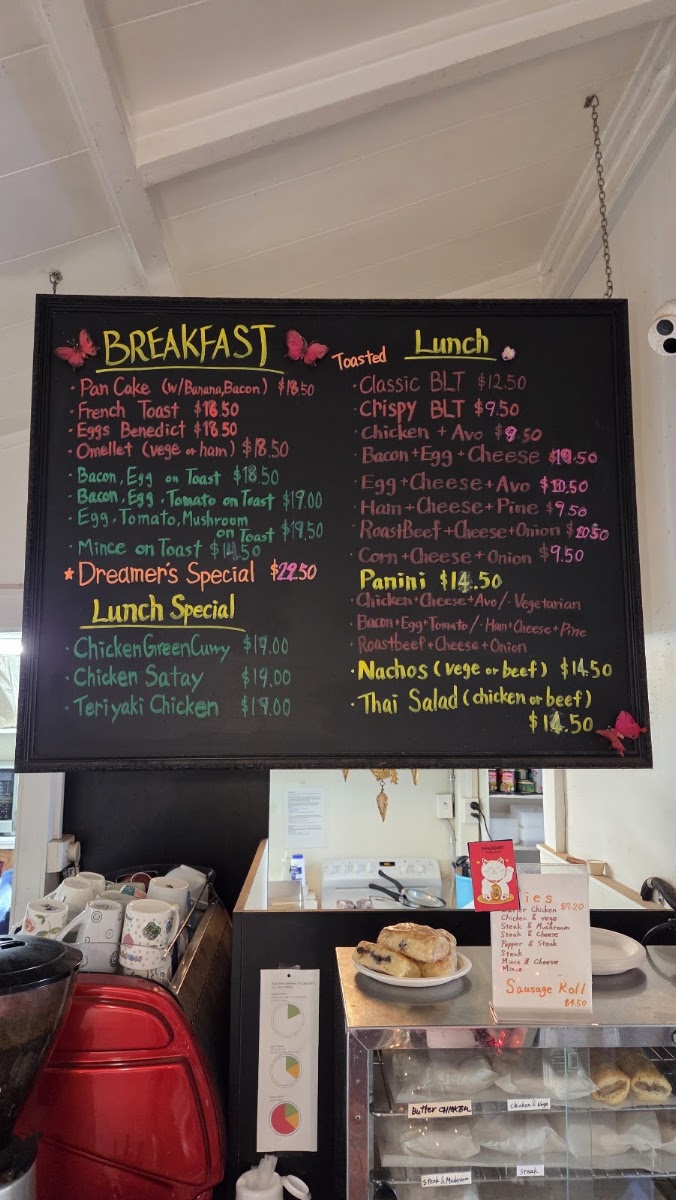 BREAKFAST
· Pan Cake (w/Banana,Bacon) $18.50
· French Toast $18.50
· Eggs Benedict $18.50
· Omellet (vege or ham) $18.50
· Bacon, Egg on Toast $18.50
· Bacon, Egg, Tomato on Toast $19.00
· Egg, Tomato, Mushroom
on Toast $19.50
· Mince on Toast
★ Dreamer's Special $22.50
Lunch Special
· Chicken Green Curry $19.00
· Chicken Satay $19.00
· Teriyaki Chicken $19.00
Toasted Lunch
· Classic BLT $12.50
· Crispy BLT $9.50
· Chicken + Avo $9.50
· Bacon+Egg+Cheese
· Egg+Cheese+Avo $10.50
· Ham+Cheese+Pine $9.50
· RoastBeef+Cheese+Onion $10.50
· Corn+Cheese+Onion $9.50
Panini $14.50
· Chicken+Cheese+Avo/· Vegetarian
· Bacon+Egg+Tomato/· Ham+Cheese+Pine
· Roastbeef+Cheese+Onion
· Nachos (vege or beef) $14.50
· Thai Salad (chicken or beef)
$14.50
ies $7.20
Butter Chicken
Chicken & vege
Steak & Mushroom
Steak & Cheese
Pepper & Steak
Steak
Mince & Cheese
Mince
Sausage Roll
$4.50
Butter CHICKEN
Chicken & Vege
Steak & Mushroom
Steak